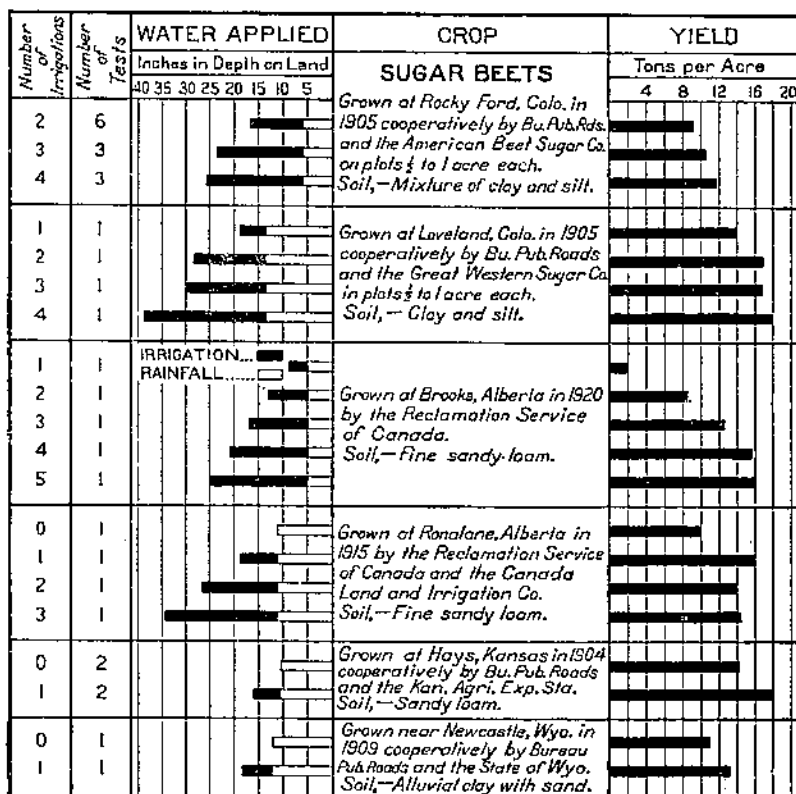 Number of Irrigations
Number of Tests
WATER APPLIED
CROP
YIELD
Inches in Depth on Land
SUGAR BEETS
Tons per Acre
40 35 30 25 20 15 10 5
4 8 12 16 20
2 6
3 3
4 3
Grown at Rocky Ford, Colo. in
1905 cooperatively by Bu. Pub. Rds.
and the American Beet Sugar Co.
on plots ½ to 1 acre each.
Soil,—Mixture of clay and silt.
1 1
2 1
3 1
4 1
Grown at Loveland, Colo. in 1905
cooperatively by Bu. Pub. Roads
and the Great Western Sugar Co.
in plots to 1 acre each.
Soil,—Clay and silt.
IRRIGATION...
RAINFALL.....
1 1
2 1
3 1
4 1
5 1
Grown at Brooks, Alberta in 1920
by the Reclamation Service
of Canada.
Soil,—Fine sandy-loam.
0 1
1 1
2 1
3 1
Grown at Ronalane, Alberta in
1915 by the Reclamation Service
of Canada and the Canada
Land and Irrigation Co.
Soil,—Fine sandy loam.
0 2
1 2
Grown at Hays, Kansas in 1904
cooperatively by Bu. Pub. Roads
and the Kan. Agri. Exp. Sta.
Soil,—Sandy loam.
0 1
1 1
Grown near Newcastle, Wyo. in
1909 cooperatively by Bureau
Pub. Roads and the State of Wyo.
Soil,—Alluvial clay with sand.